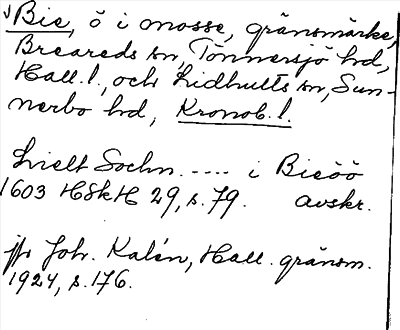 Bie, ö i mosse, gränsmärke,
Breareds sn, Tönnersjö hd,
Hall. l., och Lidhults sn, Sun-
nerbo hd, Kronob. l.
Sochn ..... i Bieöö
1603 HSkH 29, s. 79. avskr.
jfr Joh. Kalén, Hall. gränsm.
1924, s. 176.